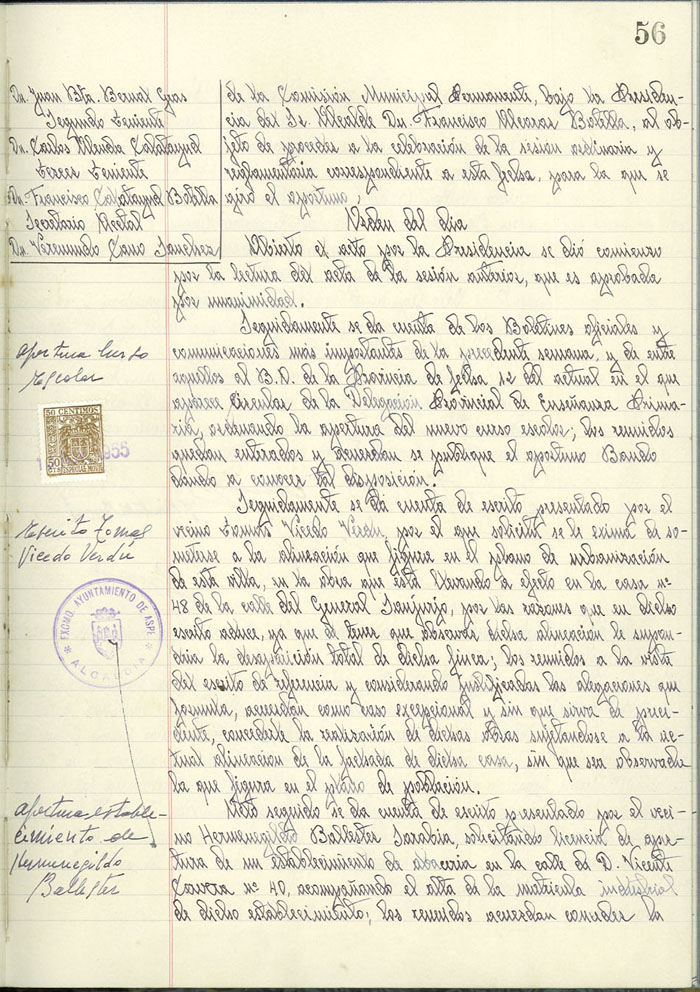 56
Dn. Juan Bta. Bernal Gras
Segundo Teniente
Dn. Carlos Mendia Calatayud
Tercer Teniente
Dn. Francisco Calatayud Botella
Secretario Acctal
Dn. Veremundo Cano Sanchez
de la Comisión Municipal Permanente, bajo la Presiden-
cia del Sr. Alcalde Dn. Francisco Alcaraz Botella, al ob-
jeto de proceder a la celebración de la sesión ordinaria y
reglamentaria correspondiente a esta fecha, para la que se
giró el oportuno,
Orden del dia
Abierto el acto por la Presidencia se dió comienzo
por la lectura del acta de la sesión anterior, que es aprobada
por unanimidad.
apertura Curso
Escolar
Seguidamente se da cuenta de los Boletines oficiales y
comunicaciones más importantes de la precedente semana, y de entre
aquellos al B.O. de la Provincia de fecha 12 del actual en el que
aparece Circular de la Delegación Provincial de Enseñanza Prima-
ria, ordenando la apertura del nuevo curso escolar; los reunidos
quedan enterados y acuerdan se publique el oportuno Bando
dando a conocer tal disposición.
50 CENTIMOS
50
ESPECIAL MOVIL
Escrito Tomas
Vicedo Verdú
Seguidamente se dá cuenta de escrito presentado por el
vecino Tomás Vicedo Verdú, por el que solicita se le exima de so-
meterse a la alineación que figura en el plano de urbanización
de esta villa, en la obra que está llevando a efecto en la casa nº
48 de la calle del General Sanjurjo, por las razones que en dicho
escrito aduce, ya que de tener que observar dicha alineación le supon-
dria la desaparición total de dicha finca; los reunidos a la vista
del escrito de referencia y considerando justificadas las alegaciones que
formula, acuerdan como caso excepcional y sin que sirva de prece-
dente, concederle la realización de dichas obras sujetandose a la ac-
tual alineación de la fachada de dicha casa, sin que sea observada
la que figura en el plano de población.
EXCMO. AYUNTAMIENTO DE ASPE
ALCALDIA
apertura estable-
cimiento de
Hermenegildo
Ballester
Acto seguido se da cuenta de escrito presentado por el veci-
no Hermenegildo Ballester Sarabia, solicitando licencia de aper-
tura de un establecimiento de abaceria en la calle de D. Vicente
nº 40, acompañando el alta de la matricula industrial
de dicho establecimiento; los reunidos acuerdan conceder la